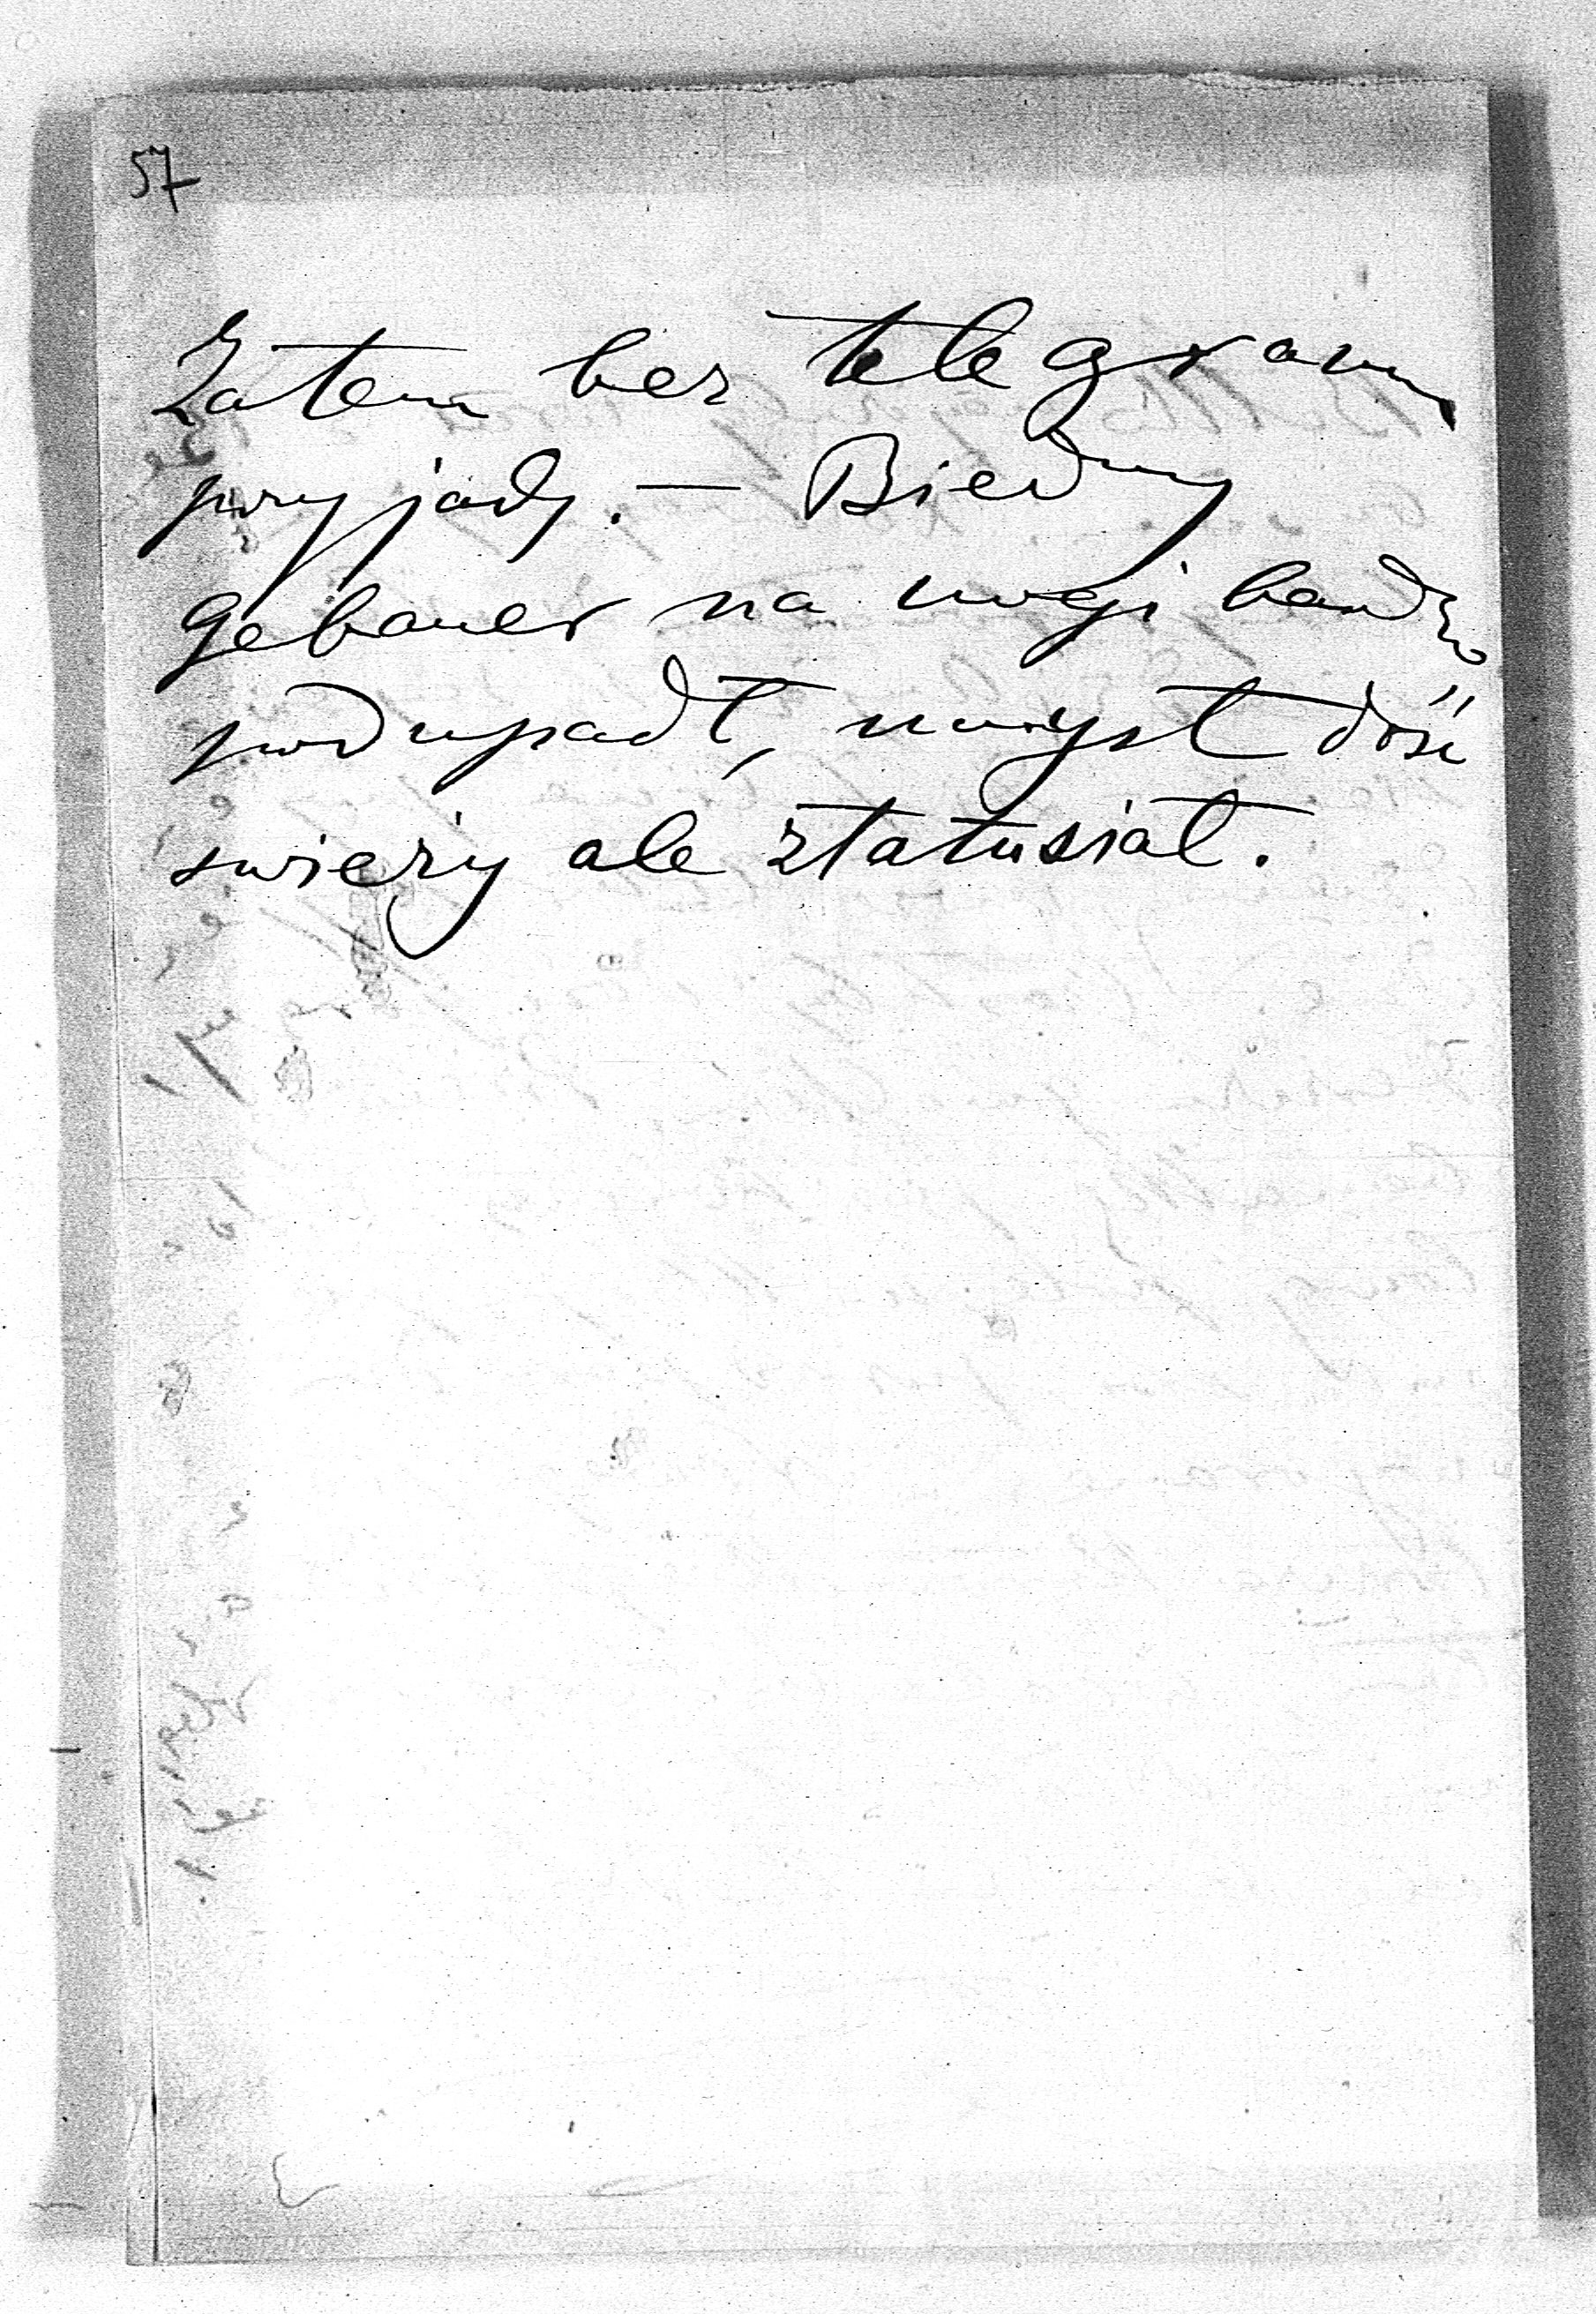 57
Zatem bez telegramu
przyjadę. — Biedny
Gebauer na nogi bardzo
podupadł, umysł dość
świeży ale ztatusiał.